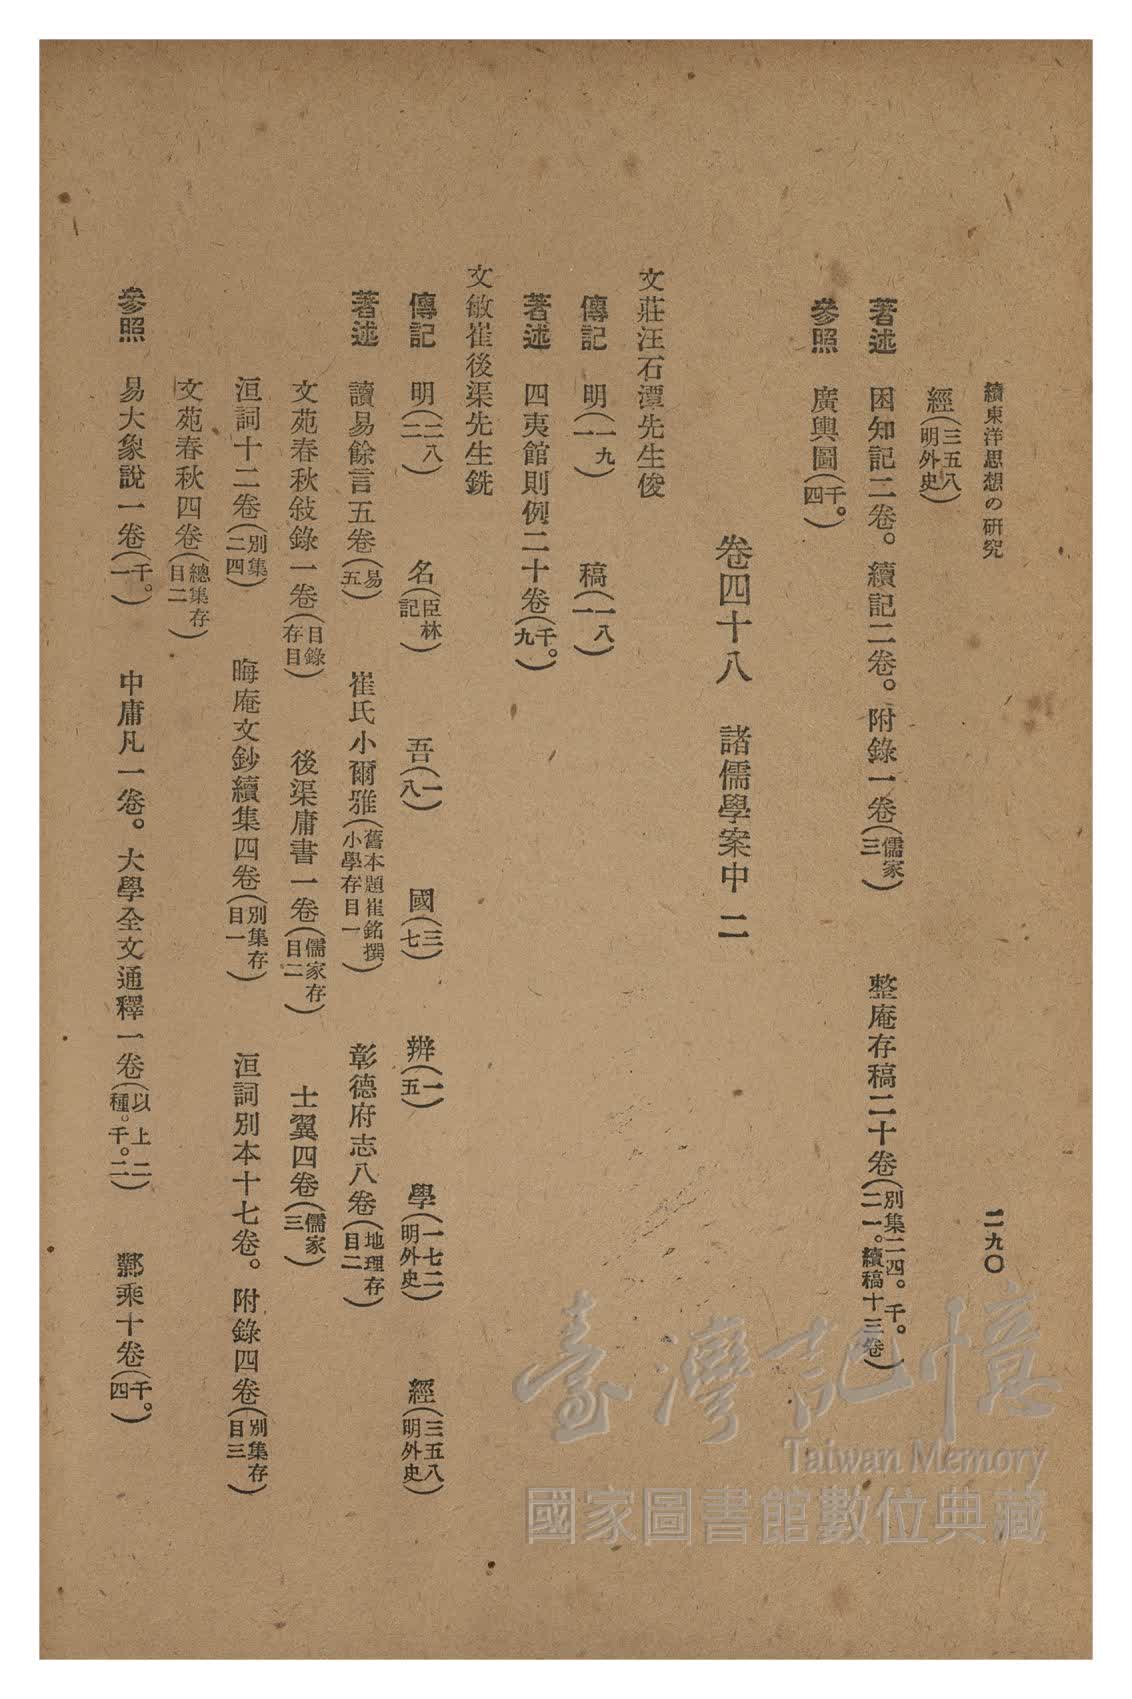 續東洋思想の研究
二九〇
經(三五八明外史)
著述 困知記二卷。續記二卷。附錄一卷(儒家三) 整庵存稿二十卷(別集二四。千。二一。續稿十三卷)
參照 廣輿圖(千。四)
卷四十八 諸儒學案中二
文莊汪石潭先生俊
傳記 明(一九一) 稿(一八一)
著述 四夷館則例二十卷(千。九)
文敏崔後渠先生銑
傳記 明(二八二) 名(臣林記) 吾(一八) 國(三七) 辨(一五) 學(一七二明外史) 經(三五八明外史)
著述 讀易餘言五卷(易五) 崔氏小爾雅(舊本題崔銘撰小學存目一) 彰德府志八卷(地理存目二)
文苑春秋敍錄一卷(目錄存目) 後渠庸書一卷(儒家存目二) 士翼四卷(儒家三)
洹詞十二卷(別集二四) 晦庵文鈔續集四卷(別集存目一) 洹詞別本十七卷。附錄四卷(別集存目三)
文苑春秋四卷(總集存目二)
參照 易大象說一卷(千。一) 中庸凡一卷。大學全文通釋一卷(以上二種。千。二) 鄴乘十卷(千。四)
臺灣記憶
Taiwan Memory
國家圖書館數位典藏